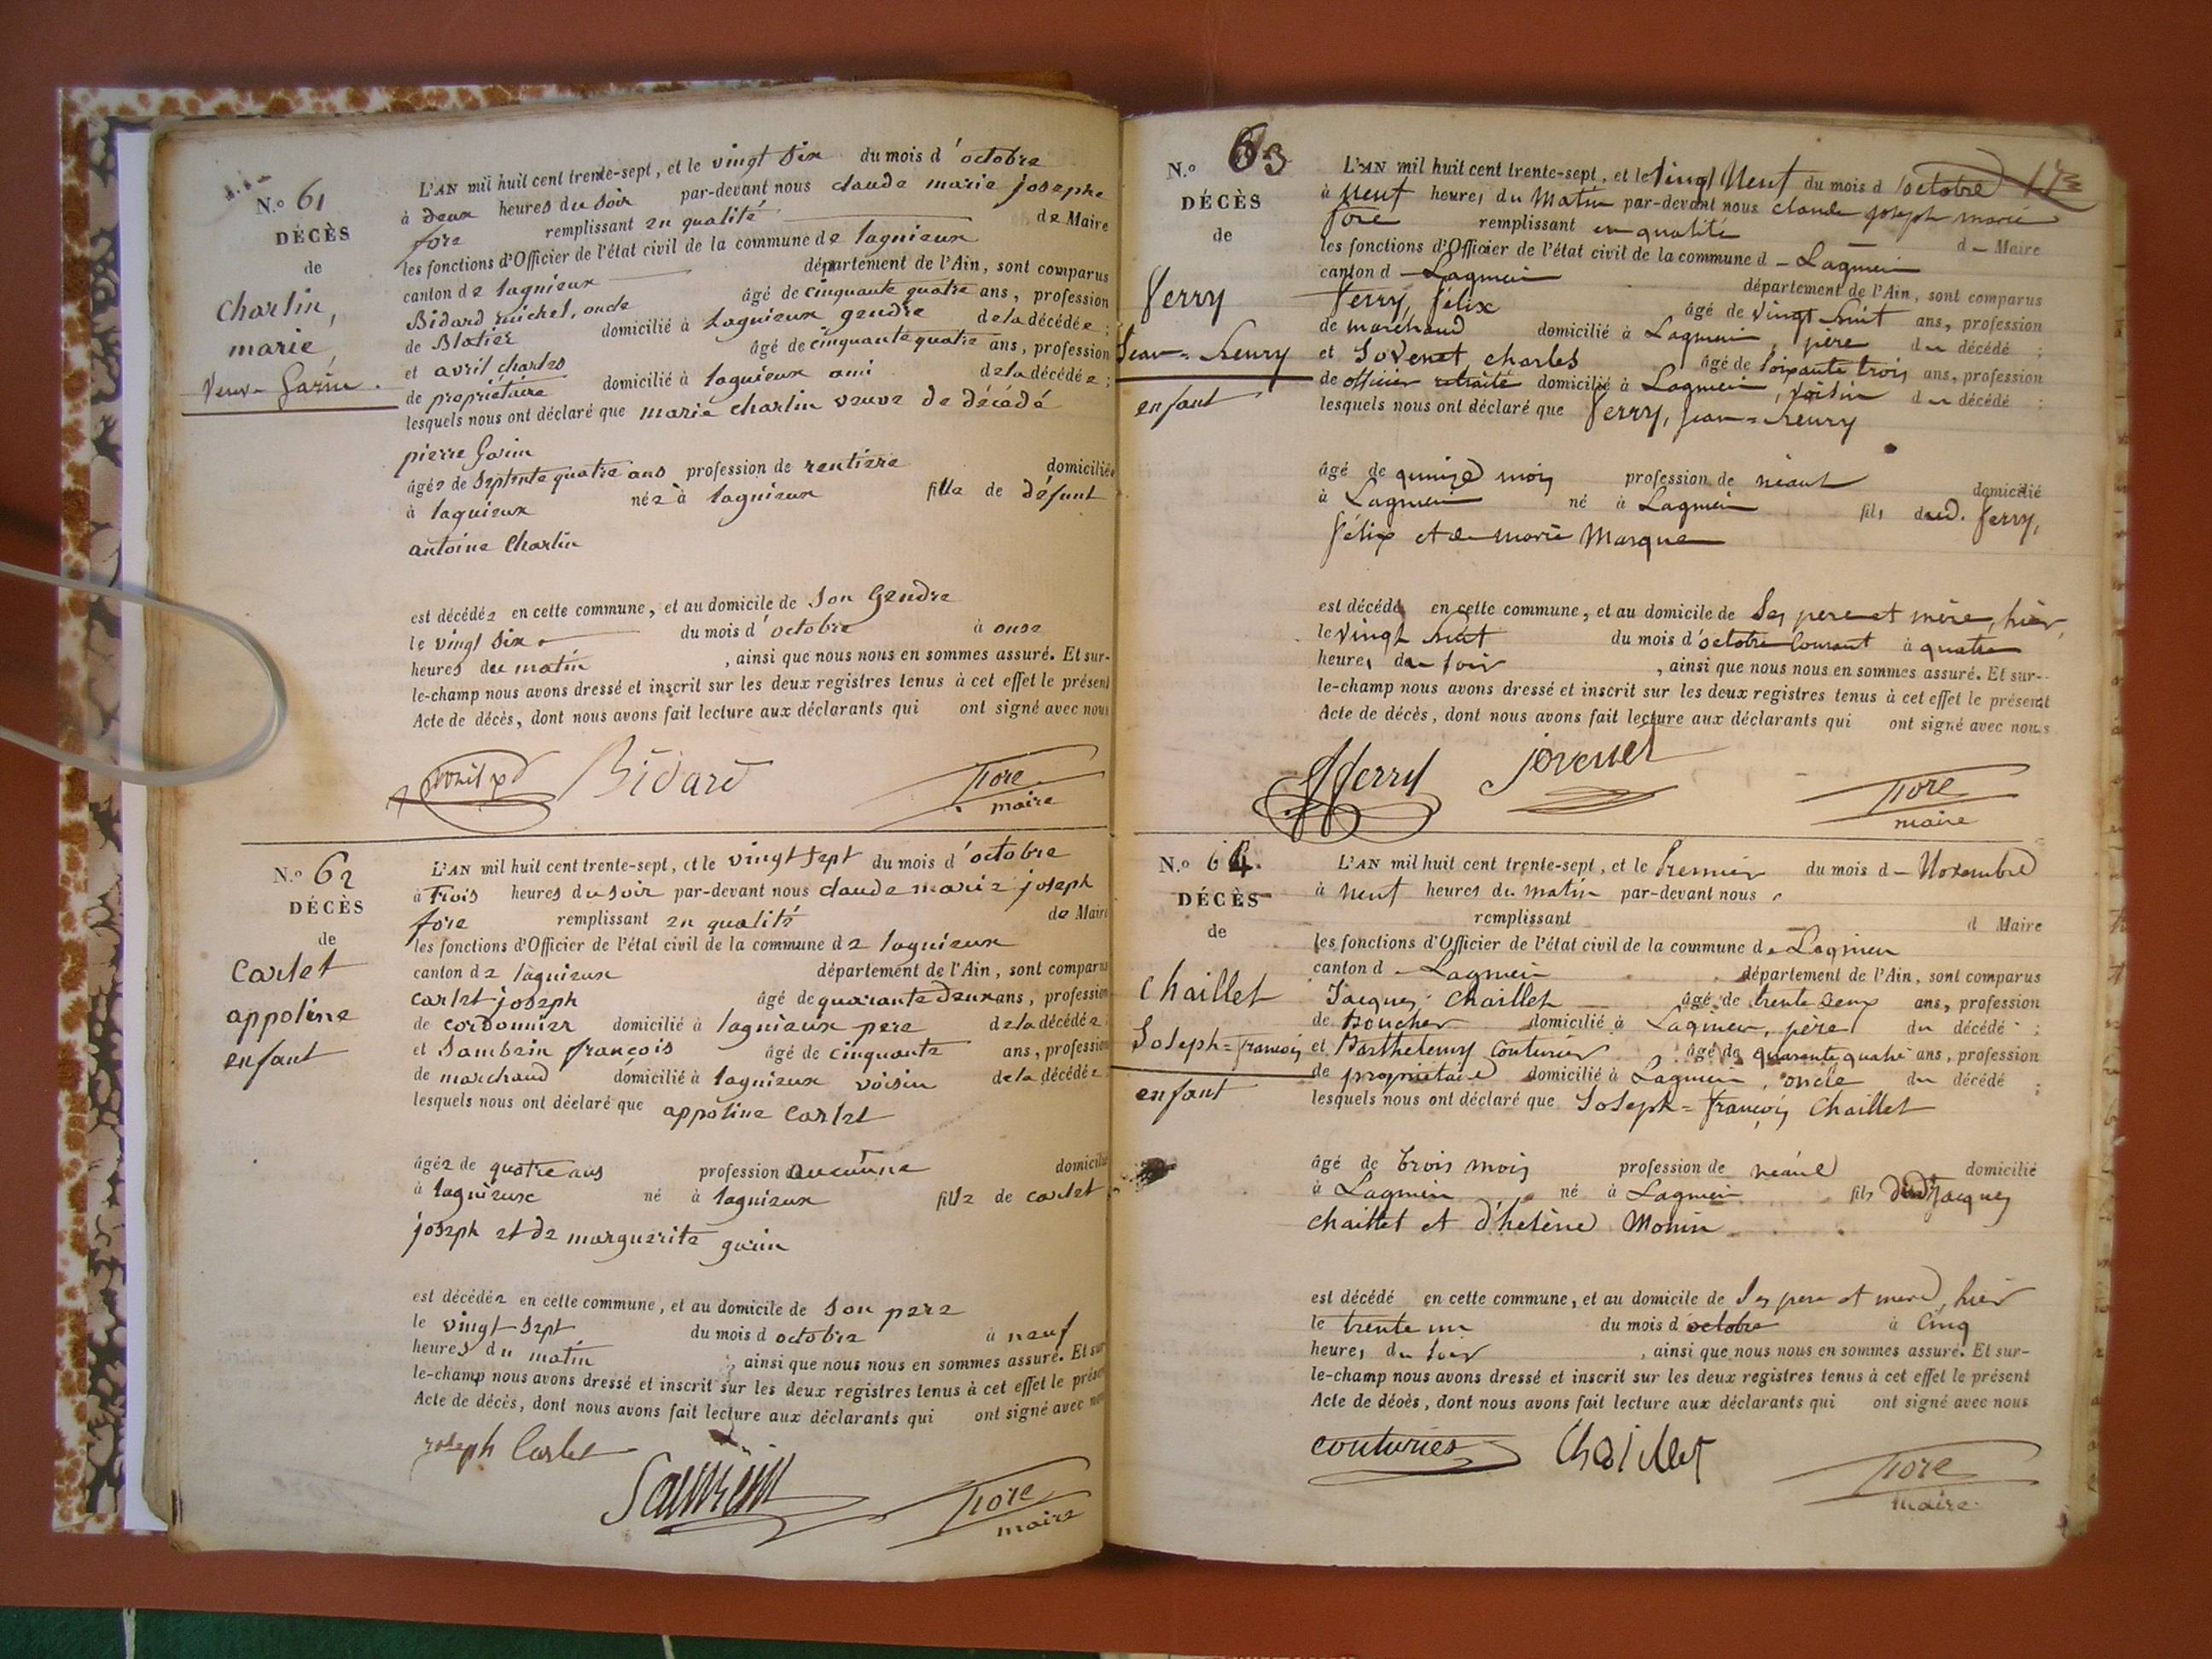 N.o 61
DÉCÈS
de
Charlin,
marie,
Veuve Garin.
L'AN mil huit cent trente-sept, et le vingt six du mois d'octobre
à deux heures du soir par-devant nous claude marie josephe
fore remplissant en qualité de Maire
les fonctions d'Officier de l'état civil de la commune de lagnieux
canton de lagnieux département de l'Ain, sont comparus
Bidard michel, âgé de cinquante quatre ans, profession
de Blatier domicilié à Lagnieux gendre de la décédée;
et avril charles âgé de cinquante quatre ans, profession
de propriétaire domicilié à lagnieux ami de la décédée;
lesquels nous ont déclaré que marie charlin veuve de décédé
pierre Garin
âgée de septente quatre ans profession de rentiere domiciliée
à lagnieux née à lagnieux fille de défunt
antoine Charlin
est décédée en cette commune, et au domicile de son Gendre
le vingt six du mois d'octobre à onze
heures du matin, ainsi que nous nous en sommes assuré. Et sur-
le-champ nous avons dressé et inscrit sur les deux registres tenus à cet effet le présent
Acte de décès, dont nous avons fait lecture aux déclarants qui ont signé avec nous
Bidard fore
maire
N.o 62
DÉCÈS
de
Carlet
appoline
enfant
L'AN mil huit cent trente-sept, et le vingt sept du mois d'octobre
à Trois heures du soir par-devant nous claude marie joseph
fore remplissant en qualité de Maire
les fonctions d'Officier de l'état civil de la commune de lagnieux
canton de lagnieux département de l'Ain, sont comparus
carlet joseph âgé de quarante deux ans, profession
de cordonnier domicilié à lagnieux pere de la décédée
et Sambein françois âgé de cinquante ans, profession
de marchand domicilié à lagnieux voisin de la décédée
lesquels nous ont déclaré que appoline Carlet
âgée de quatre ans profession d aucunne domicilié
à lagnieux né à lagnieux fille de carlet
joseph et de marguerite garin
est décédée en cette commune, et au domicile de son pere
le vingt sept du mois d octobre à neuf
heures du matin, ainsi que nous nous en sommes assuré. Et sur
le-champ nous avons dressé et inscrit sur les deux registres tenus à cet effet le présen
Acte de décès, dont nous avons fait lecture aux déclarants qui ont signé avec nou
joseph Carlet
fore
maire
N.o 63
DÉCÈS
de
ferry
Jean=henry
enfant
L'AN mil huit cent trente-sept, et le vingt Neuf du mois d'octobre 173
à Neuf heures du Matin par-devant nous claude joseph marie
fore remplissant en qualité d Maire
les fonctions d'Officier de l'état civil de la commune d Lagnieu
canton d Lagnieu département de l'Ain, sont comparus
ferry, félix âgé de vingt huit ans, profession
de maréchaud domicilié à Lagnieu, père du décédé;
et Jovenet, charles âgé de soixante trois ans, profession
de officier retraité domicilié à Lagnieu, voisin du décédé;
lesquels nous ont déclaré que ferry, jean=henry
âgé de quinze mois profession de néant domicilié
à Lagnieu né à Lagnieu fils dud. ferry,
félix et de marie Marque
est décédé en cette commune, et au domicile de ses pere et mère, hier,
le vingt huit du mois d'octobre courant à quatre
heures du soir, ainsi que nous nous en sommes assuré. Et sur-
le-champ nous avons dressé et inscrit sur les deux registres tenus à cet effet le présent
Acte de décès, dont nous avons fait lecture aux déclarants qui ont signé avec nous
fferry jovenet fore
maire
N.o 64.
DÉCÈS
de
Chaillet
Joseph=françois
enfant
L'AN mil huit cent trente-sept, et le Premier du mois d Novembre
à Neuf heures du matin par-devant nous
remplissant d Maire
les fonctions d'Officier de l'état civil de la commune de Lagnieu
canton d Lagnieu département de l'Ain, sont comparus
Jacques Chaillet âgé de trente deux ans, profession
de Boucher domicilié à Lagnieu, père du décédé;
et Barthelemy Couturier âgé de quarante quatre ans, profession
de propriétaire domicilié à Lagnieu, oncle du décédé;
lesquels nous ont déclaré que Joseph=françois Chaillet
âgé de trois mois profession de néant domicilié
à Lagnieu né à Lagnieu fils dud. Jacques
chaillet et d'helène Monin
est décédé en cette commune, et au domicile de ses pere et mere, hier
le trente un du mois d octobre à Cinq
heures du soir, ainsi que nous nous en sommes assuré. Et sur-
le-champ nous avons dressé et inscrit sur les deux registres tenus à cet effet le présent
Acte de décès, dont nous avons fait lecture aux déclarants qui ont signé avec nous
couturier Chaillet fore
maire